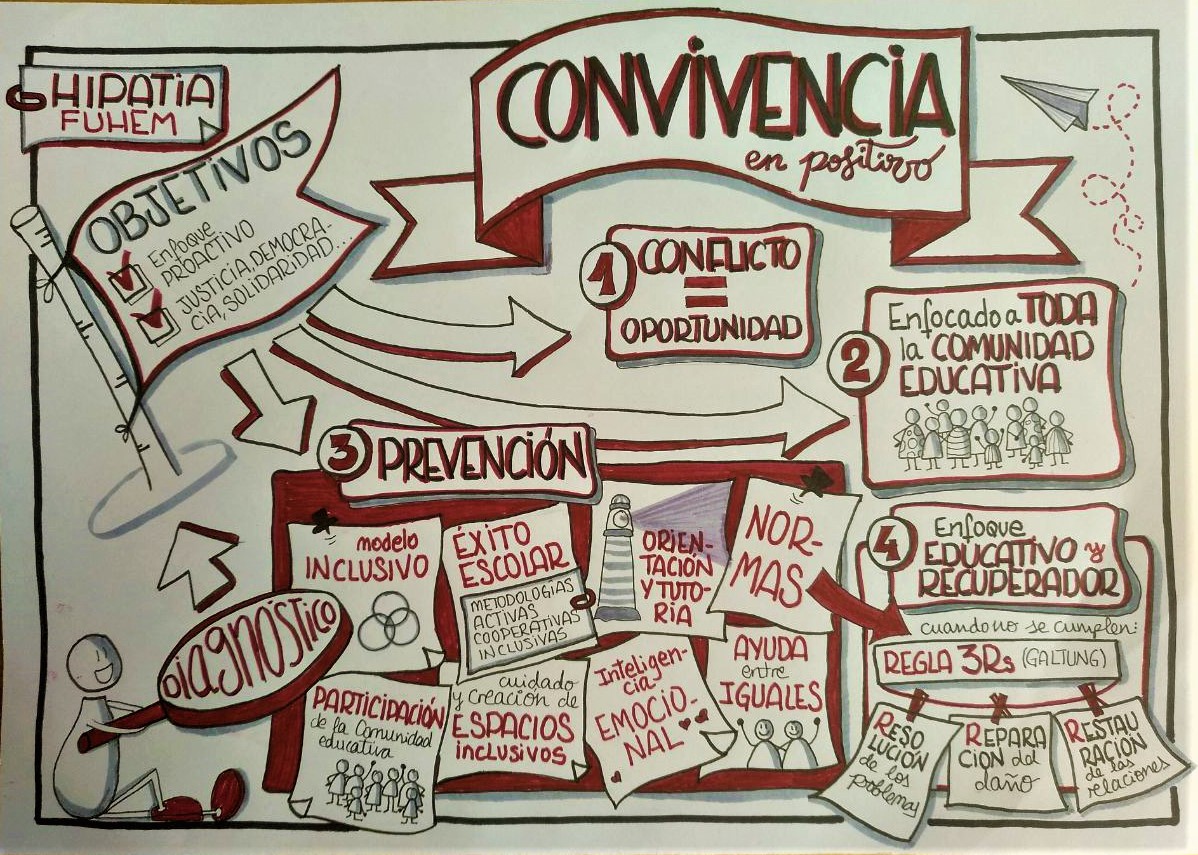 HIPATIA
FUHEM
CONVIVENCIA
en positivo
OBJETIVOS
Enfoque
PROACTIVO
JUSTICIA, DEMOCRA-
CIA, SOLIDARIDAD...
1 CONFLICTO
=
OPORTUNIDAD
2 Enfocado a TODA
la COMUNIDAD
EDUCATIVA
3 PREVENCIÓN
modelo
INCLUSIVO
ÉXITO
ESCOLAR
METODOLOGÍAS
ACTIVAS
COOPERATIVAS
INCLUSIVAS
ORIEN-
TACIÓN
Y TUTO-
RIA
NOR-
MAS
DIAGNÓSTICO
PARTICIPACIÓN
de la Comunidad
educativa
cuidado
y creación de
ESPACIOS
inclusivos
Inteligen-
cia
EMOCIO-
NAL
AYUDA
entre
IGUALES
4 Enfoque
EDUCATIVO y
RECUPERADOR
cuando no se cumplen:
REGLA 3Rs (GALTUNG)
RESO
LUCIÓN
de los
problemas
REPARA
CIÓN del
daño
RESTAU
RACIÓN
de las
relaciones